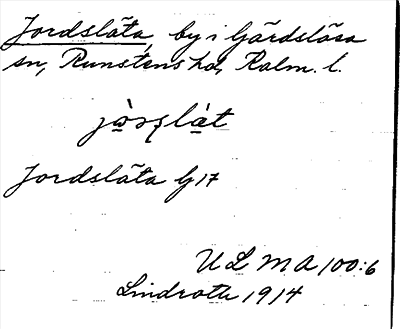 Jordsläta, by i Gärdslösa
sn, Runstens hd, Kalm. l.
Jordsläta G 17
ULMA 100:6
Lindroth 1914